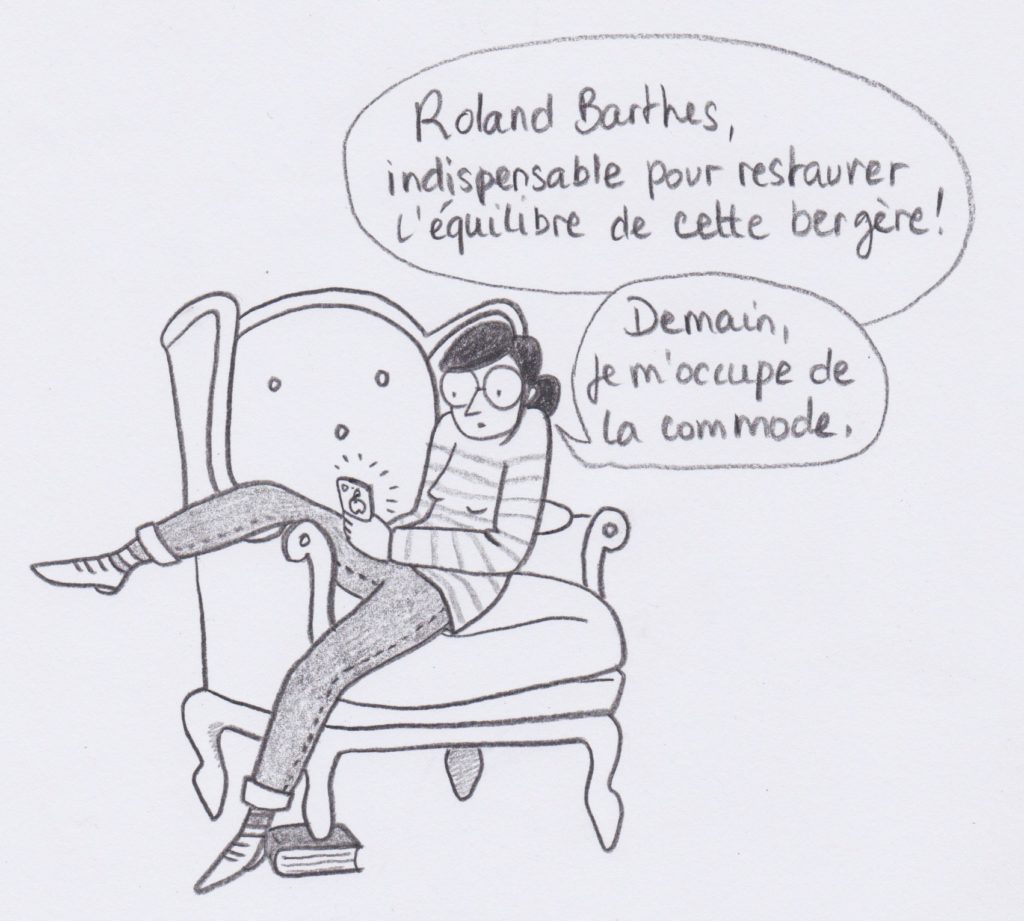 Roland Barthes,
indispensable pour restaurer
l'équilibre de cette bergère!
Demain,
je m'occupe de
la commode.